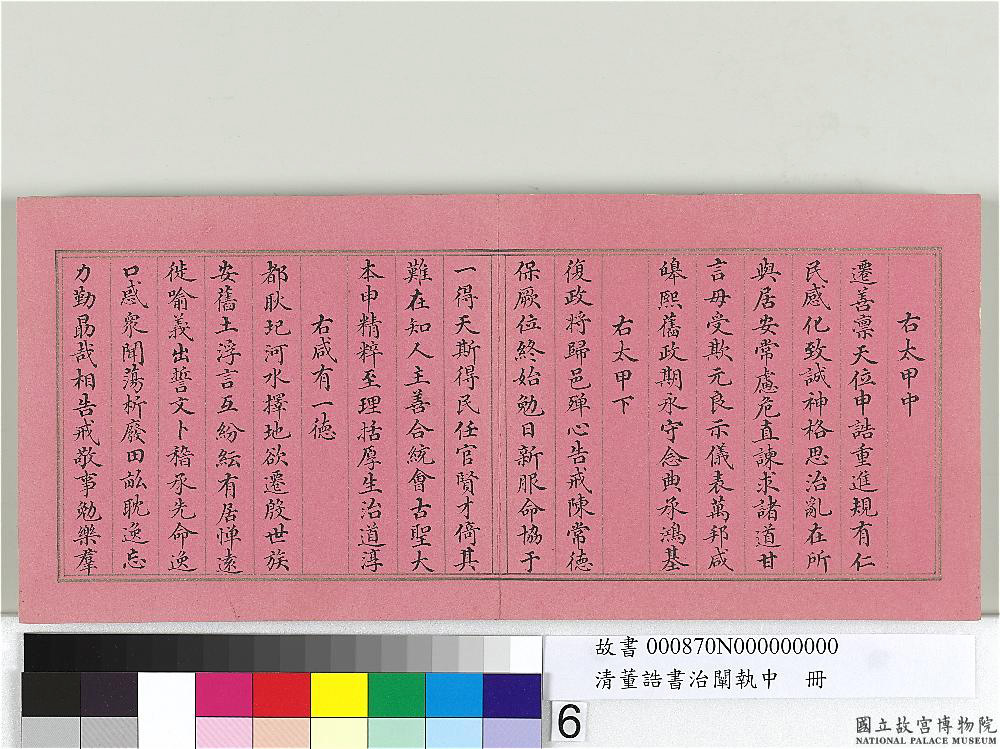 右太甲中
遷善凛天位申誥重進規有仁
民感化致誠神格思治亂在所
與居安常慮危直諫求諸道甘
言毋受欺元良示儀表萬邦咸
皥熙舊政期永守念典承鴻基
右太甲下
復政將歸邑殫心告戒陳常德
保厥位終始勉日新服命協于
一得天斯得民任官賢才倚其
難在知人主善合統會古聖大
本申精粹至理括厚生治道淳
右咸有一德
都耿圯河水擇地欲遷殷世族
安舊土浮言互紛紜有居惮遠
徙喻義出誓文卜稽承先命逸
口惑衆聞蕩析廢田畆耽逸忘
力勤勗哉相告戒敬事勉樂羣
故書 000870N000000000
清董誥書治闡執中 冊
6
國立故宮博物院
NATIONAL PALACE MUSEUM